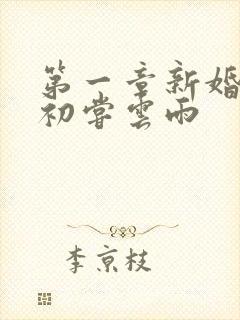 第一章新婚
初嘗雲雨
李京枝